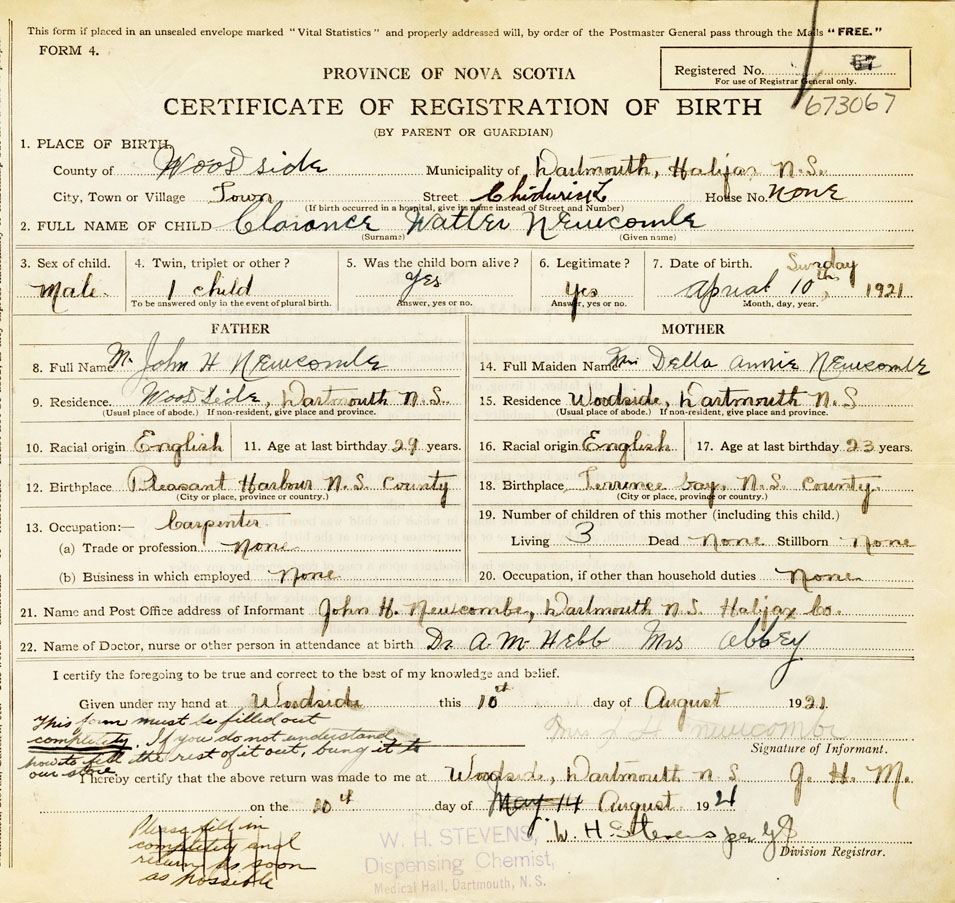 This form if placed in an unsealed envelope marked "Vital Statistics" and properly addressed will, by order of the Postmaster General pass through the Mails "FREE."
FORM 4.
PROVINCE OF NOVA SCOTIA
Registered No. 67
For use of Registrar General only.
673067
CERTIFICATE OF REGISTRATION OF BIRTH
(BY PARENT OR GUARDIAN)
1. PLACE OF BIRTH
County of Woodside Municipality of Dartmouth, Halifax N.S.
City, Town or Village Town Street House No. NONE
(If birth occurred in a hospital, give its name instead of Street and Number)
2. FULL NAME OF CHILD Clarance Walter Newcombe
(Surname) (Given name)
3. Sex of child. 4. Twin, triplet or other? 5. Was the child born alive? 6. Legitimate? 7. Date of birth. Sunday
Male. 1 child Yes Yes 10th, 1921
To be answered only in the event of plural birth. Answer, yes or no. Answer, yes or no. Month, day, year.
FATHER MOTHER
8. Full Name M. John H Newcombe 14. Full Maiden Name Della Annie Newcombe
9. Residence. Woodside, Dartmouth N.S. 15. Residence Woodside, Dartmouth N.S
(Usual place of abode.) If non-resident, give place and province. (Usual place of abode.) If non-resident, give place and province.
10. Racial origin English 11. Age at last birthday 29 years. 16. Racial origin English 17. Age at last birthday 23 years.
12. Birthplace Pleasant Harbour N.S. County 18. Birthplace Terrence bay, N.S. County
(City or place, province or country.) (City or place, province or country.)
13. Occupation:— Carpenter 19. Number of children of this mother (including this child.)
(a) Trade or profession None Living 3 Dead None Stillborn None
(b) Business in which employed None 20. Occupation, if other than household duties None
21. Name and Post Office address of Informant John H. Newcombe, Dartmouth N.S. Halifax Co.
22. Name of Doctor, nurse or other person in attendance at birth Dr A. M. Hebb Mrs Abbey
I certify the foregoing to be true and correct to the best of my knowledge and belief.
Given under my hand at Woodside this 10th day of August 1921
This form must be filled out
completely. If you do not understand
how to fill the rest of it out, bring it to
our store
Mrs J H Newcombe
Signature of Informant.
I hereby certify that the above return was made to me at Woodside, Dartmouth N.S J. H. M.
on the 10th day of May 14 August 1921
Please fill in
completely and
return as soon
as possible
W. H. Stevens per
Division Registrar.
W. H. STEVENS,
Dispensing Chemist,
Medical Hall, Dartmouth, N. S.